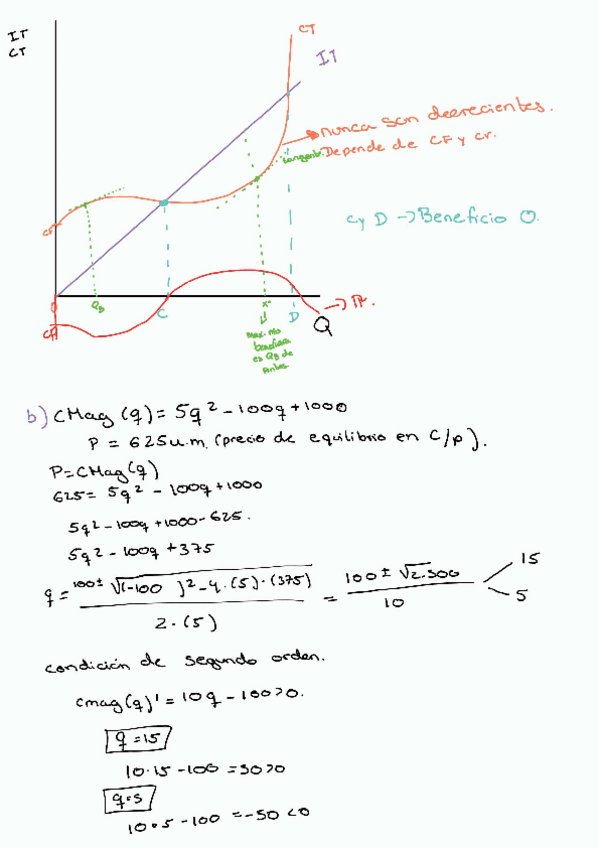 IT
CT
CT
IT
nunca son decrecientes.
tangente. Depende de CF y CV.
C y D → Beneficio 0.
CF
0
QB
C
x*
D
→ π.
CF
Q
Max. nto
beneficio
es QB de
antes
b) CMag (q) = 5q² - 100q + 1000
P = 625 u.m. (precio de equilibrio en c/p).
P = CMag(q)
625 = 5q² - 100q + 1000
5q² - 100q + 1000 - 625.
5q² - 100q + 375
q = 100 ± √(-100 )² - 4·(5)·(375) / 2·(5) = 100 ± √2.500 / 10
15
5
condición de segundo orden.
cmag(q)' = 10q - 100 > 0.
q = 15
10·15 - 100 = 50 > 0
q = 5
10·5 - 100 = -50 < 0